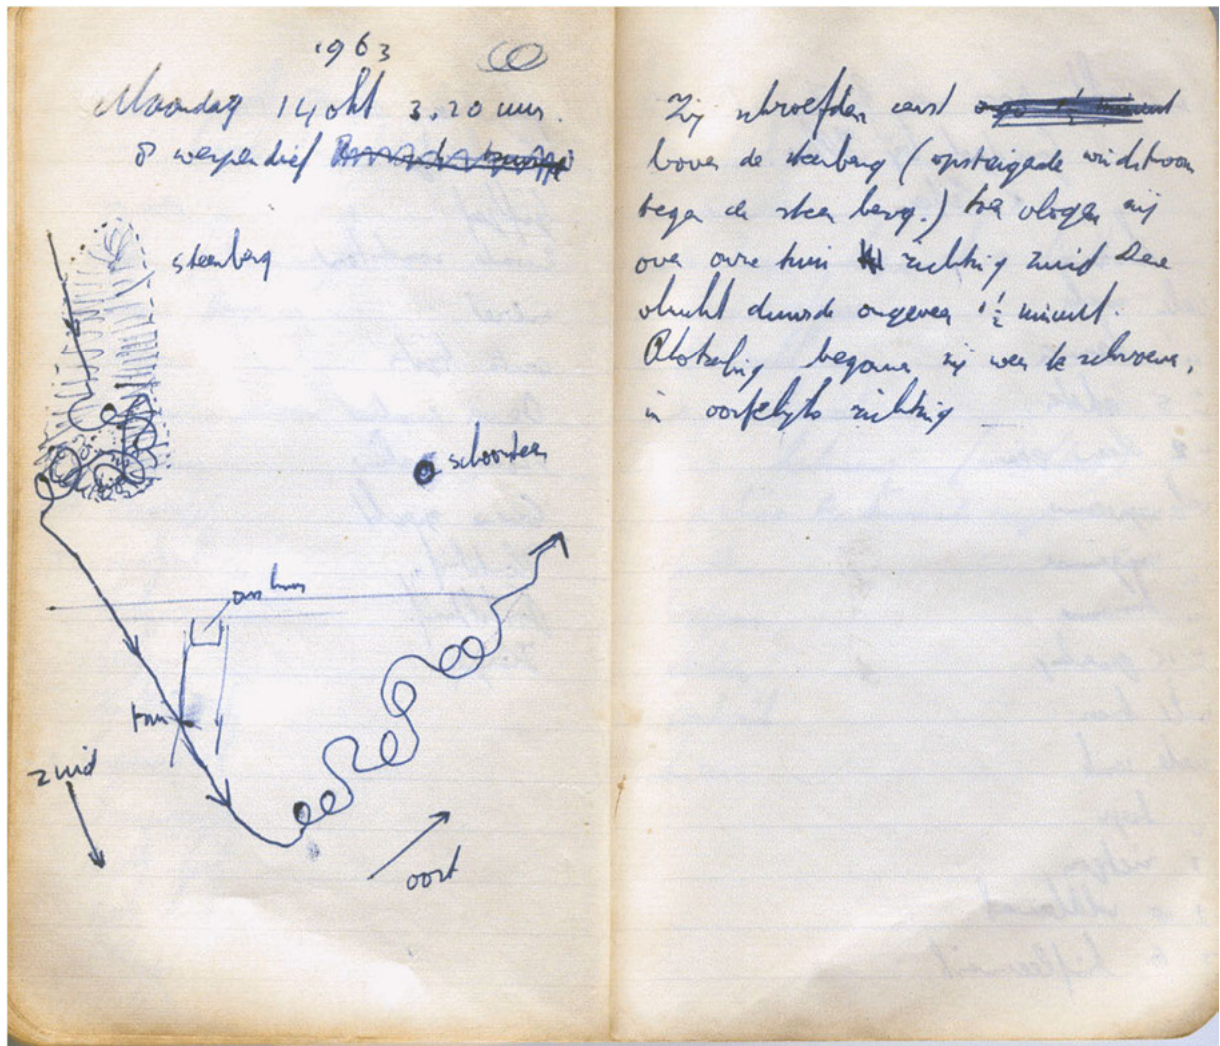 1963
Maandag 14 okt 3.20 uur.
8 wespendief
steenberg
schoorsteen
ons huis
tuin
zuid
oost
Zij schroefden eerst
boven de steenberg (opstijgende windstroom
tegen de steenberg.) toen vlogen zij
over onze tuin richting zuid Deze
vlucht duurde ongeveer 1½ minuut.
Plotseling begonnen zij weer te schroeven,
in oostelijke richting